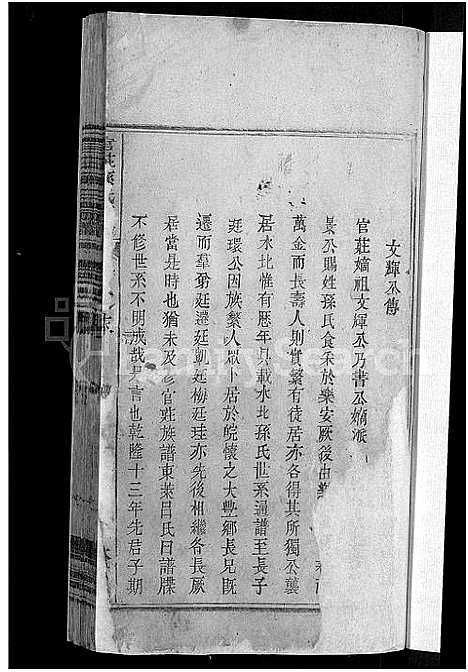 文輝公傳
官莊嫡祖文輝公乃書公嫡派
景公賜姓孫氏食采於樂安厥後由
萬金而長壽人則實繁有徒居亦各得其所獨公襲
居水北惟有歷年具載水北孫氏世系過譜至長子
廷環公因族繁人眾卜居於皖懷之大豐鄉長兄既
遷而羣弟廷遷廷凱廷梅廷珪亦先後相繼各長厥
居當是時也猶未及修官莊族譜東萊呂氏曰譜牒
不修世系不明戒哉是言也乾隆十三年先君子期